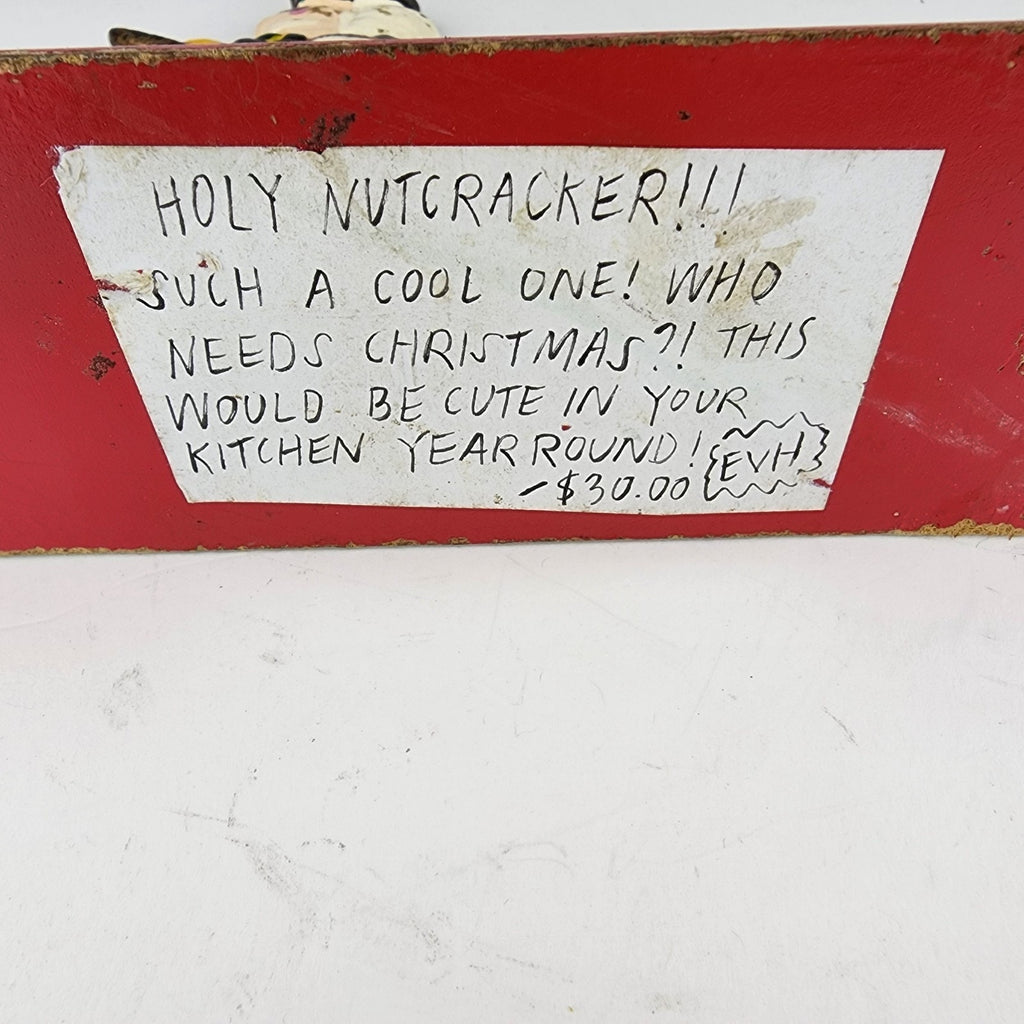 HOLY NUTCRACKER!!!
SUCH A COOL ONE! WHO
NEEDS CHRISTMAS?! THIS
WOULD BE CUTE IN YOUR
KITCHEN YEAR ROUND! EVH
-$30.00